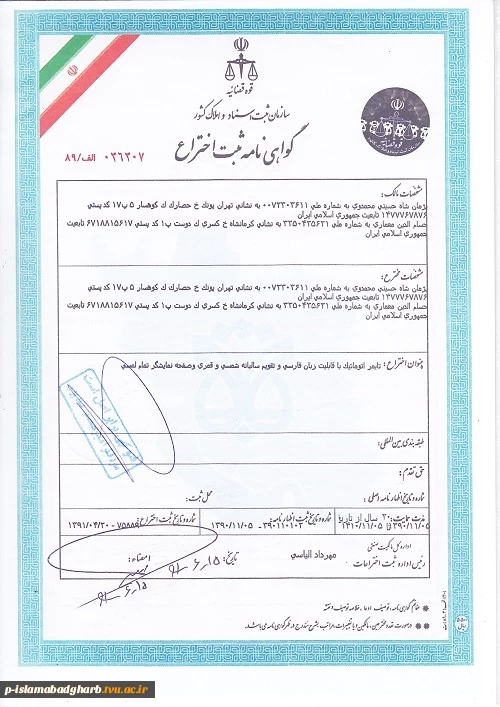 قوه قضائیه
سازمان ثبت اسناد و املاک کشور
گواهی نامه ثبت اختراع
۰۳۶۳۰۷ الف/۸۹
قوه قضائیه
مشخصات مالک:
پژمان شاه حسینی محمدوی به شماره ملی ۰۰۷۳۳۰۳۶۱۱ به نشانی تهران پونک خ حصارک ک کوهسار ۵ پ۱۷ کد پستی
۱۴۷۷۷۶۷۸۷۶ تابعیت جمهوری اسلامی ایران
صلم الدین معماری به شماره ملی ۳۳۵۰۴۳۵۶۳۱ به نشانی کرمانشاه خ کسری ک دوست پ۱ کد پستی ۶۷۱۸۸۱۵۶۱۷ تابعیت
جمهوری اسلامی ایران
مشخصات مخترع:
پژمان شاه حسینی محمدوی به شماره ملی ۰۰۷۳۳۰۳۶۱۱ به نشانی تهران پونک خ حصارک ک کوهسار ۵ پ۱۷ کد پستی
۱۴۷۷۷۶۷۸۷۶ تابعیت جمهوری اسلامی ایران
صلم الدین معماری به شماره ملی ۳۳۵۰۴۳۵۶۳۱ به نشانی کرمانشاه خ کسری ک دوست پ۱ کد پستی ۶۷۱۸۸۱۵۶۱۷ تابعیت
جمهوری اسلامی ایران
عنوان اختراع: تایمر اتوماتیک با قابلیت زبان فارسی و تقویم سالیانه شمسی و قمری وصفحه نمایشگر تمام لمسی
طبقه بندی بین المللی:
حق تقدم:
شماره و تاریخ اظهارنامه اصلی: محل ثبت:
مدت حمایت: ۲۰ سال از تاریخ شماره و تاریخ ثبت اظهارنامه: شماره و تاریخ ثبت اختراع:
۱۳۹۰/۱۱/۰۵ تا ۱۴۱۰/۱۱/۰۵ ۳۹۰۱۱۰۱۰۳ - ۱۳۹۰/۱۱/۰۵ ۷۵۸۵۹ - ۱۳۹۱/۰۴/۲۰
اداره کل مالکیت صنعتی
رئیس اداره ثبت اختراعات مهرداد الیاسی تاریخ: ۹۱،۶،۱۵ امضاء:
۹۱،۶،۱۵
* ضمائم گواهی نامه، توصیف، ادعا، خلاصه توصیف و نقشه
* درصورت نقل و تغییرات، مراتب بشرح مندرج در ظهر گواهی نامه می باشد.
p-islamabadgharb.tvu.ac.ir